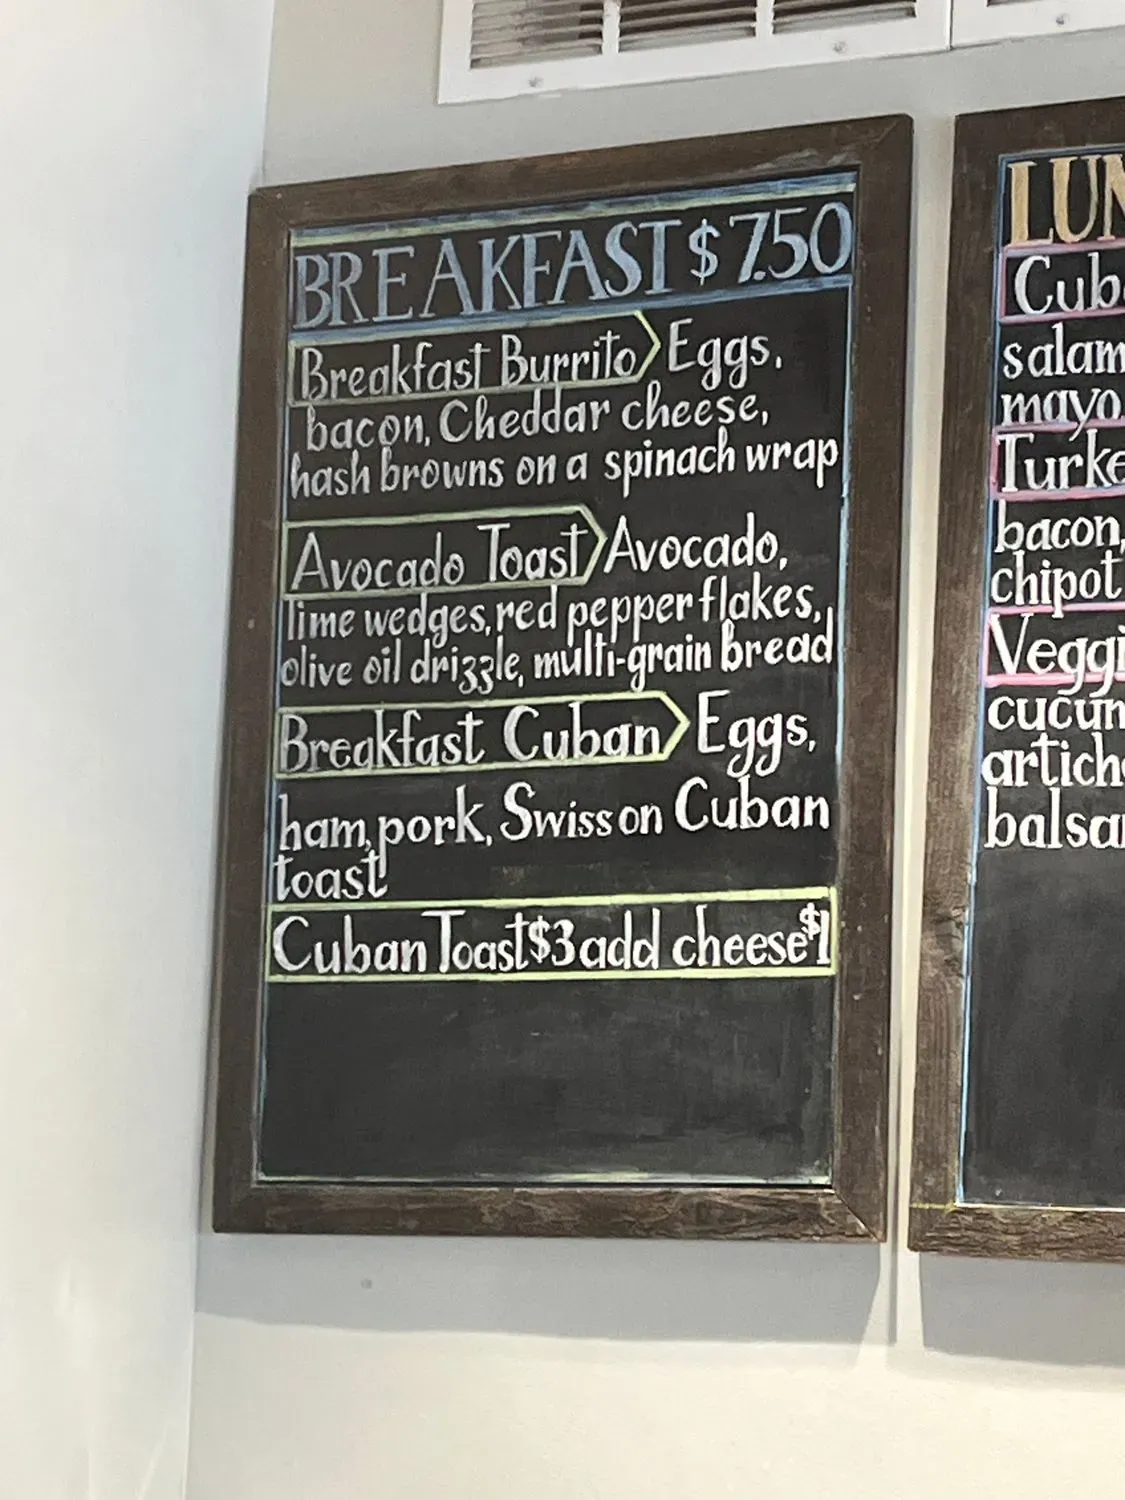 BREAKFAST $7.50
Breakfast Burrito Eggs,
bacon, Cheddar cheese,
hash browns on a spinach wrap
Avocado Toast Avocado,
lime wedges, red pepper flakes,
olive oil drizzle, multi-grain bread
Breakfast Cuban Eggs,
ham, pork, Swiss on Cuban
toast
Cuban Toast $3 add cheese $1
LUN
Cub
salam
mayo
Turke
bacon,
chipot
Veggi
cucum
artich
balsa